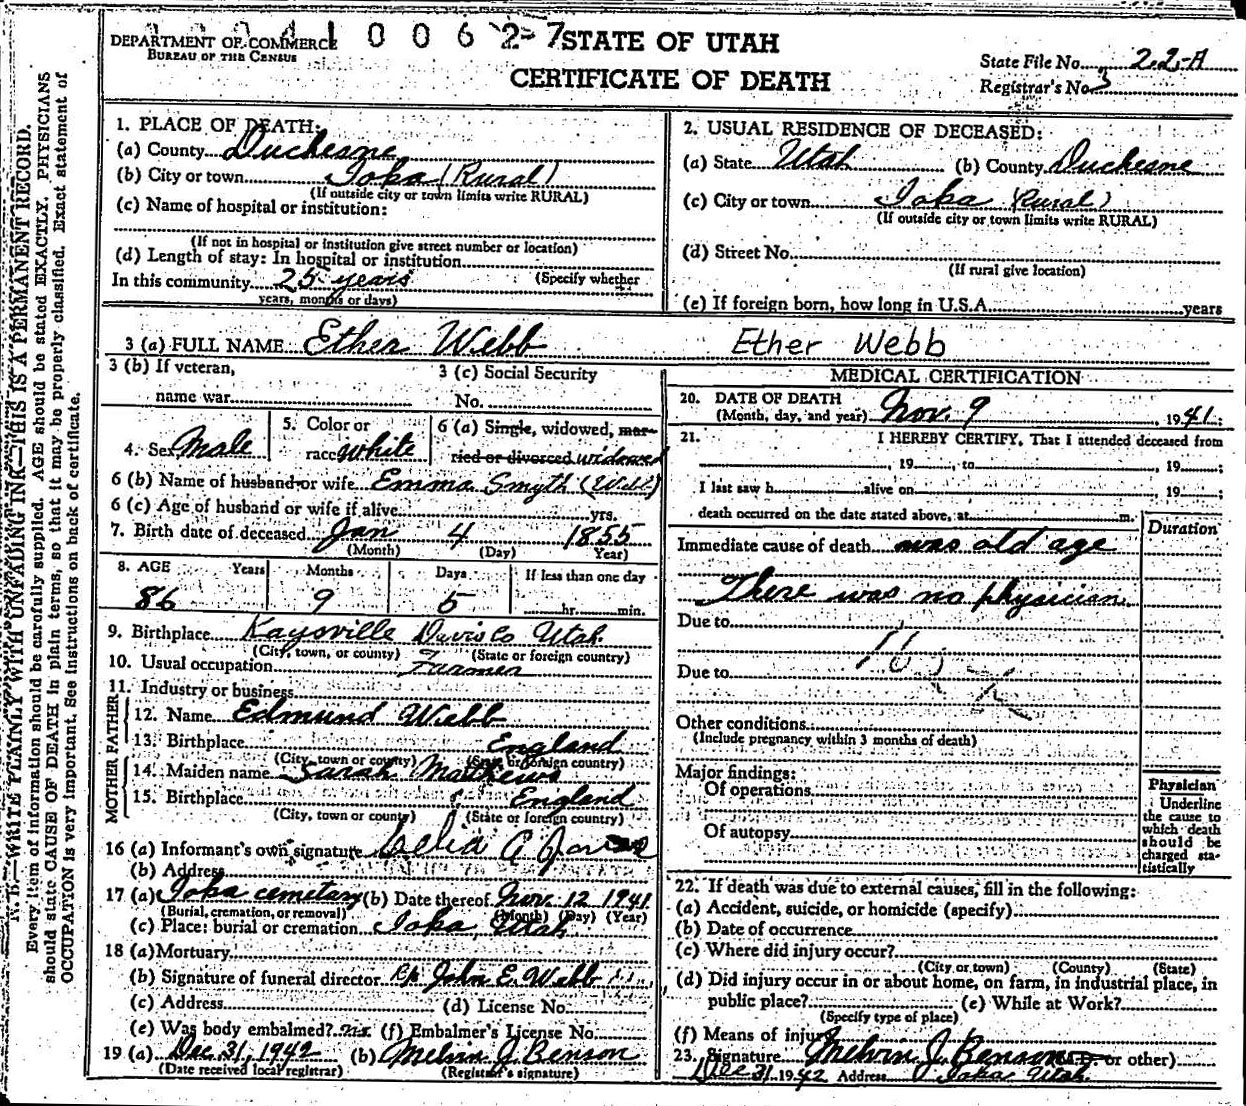 N. B.—WRITE PLAINLY WITH UNFADING INK—THIS IS A PERMANENT RECORD.
Every item of information should be carefully supplied. AGE should be stated EXACTLY. PHYSICIANS
should state CAUSE OF DEATH in plain terms, so that it may be properly classified. Exact statement of
OCCUPATION is very important. See instructions on back of certificate.
DEPARTMENT OF COMMERCE
BUREAU OF THE CENSUS
1 0 0 6 2 7
STATE OF UTAH
CERTIFICATE OF DEATH
State File No. 22-A
Registrar's No. 3
1. PLACE OF DEATH:
(a) County Duchesne
(b) City or town Ioka (Rural)
(If outside city or town limits write RURAL)
(c) Name of hospital or institution:
(If not in hospital or institution give street number or location)
(d) Length of stay: In hospital or institution
In this community 25 years (Specify whether
years, months or days)
2. USUAL RESIDENCE OF DECEASED:
(a) State Utah (b) County Duchesne
(c) City or town Ioka (Rural)
(If outside city or town limits write RURAL)
(d) Street No.
(If rural give location)
(e) If foreign born, how long in U.S.A. years
3 (a) FULL NAME Ether Webb Ether Webb
3 (b) If veteran,
name war
3 (c) Social Security
No.
4. Sex Male
5. Color or
race White
6 (a) Single, widowed, mar-
ried or divorced widowed
6 (b) Name of husband or wife Emma Smyth (Webb)
6 (c) Age of husband or wife if alive yrs.
7. Birth date of deceased Jan 4 1855
(Month) (Day) Year)
8. AGE Years Months Days If less than one day
86 9 5 hr. min.
9. Birthplace Kaysville Davis Co Utah
(City, town, or county) (State or foreign country)
10. Usual occupation Farmer
11. Industry or business
FATHER
12. Name Edmund Webb
13. Birthplace England
(City, town or county) (State or foreign country)
MOTHER
14. Maiden name Sarah Mathews
15. Birthplace England
(City, town or county) (State or foreign country)
16 (a) Informant's own signature Celia A
(b) Address
17 (a) Ioka cemetary (b) Date thereof Nov. 12 1941
(Burial, cremation, or removal) (Month) (Day) (Year)
(c) Place: burial or cremation Ioka, Utah
18 (a) Mortuary
(b) Signature of funeral director Bp. John E. Webb
(c) Address (d) License No.
(e) Was body embalmed? (f) Embalmer's License No.
19 (a) Dec 31, 1942 (b) Melvin J. Benson
(Date received local registrar) (Registrar's signature)
MEDICAL CERTIFICATION
20. DATE OF DEATH
(Month, day, and year) Nov. 9, 1941;
21. I HEREBY CERTIFY, That I attended deceased from
, 19 , to , 19 ;
I last saw h alive on , 19 ;
death occurred on the date stated above, at m.
Duration
Immediate cause of death was old age
There was no physician
Due to
Due to
Other conditions
(Include pregnancy within 3 months of death)
Major findings:
Of operations
Of autopsy
Physician
Underline
the cause to
which death
should be
charged sta-
tistically
22. If death was due to external causes, fill in the following:
(a) Accident, suicide, or homicide (specify)
(b) Date of occurrence
(c) Where did injury occur?
(City or town) (County) (State)
(d) Did injury occur in or about home, on farm, in industrial place, in
public place? (e) While at Work?
(Specify type of place)
(f) Means of injury
23. Signature Melvin J. Benson (M.D. or other)
Dec 31 1942 Address Ioka Utah